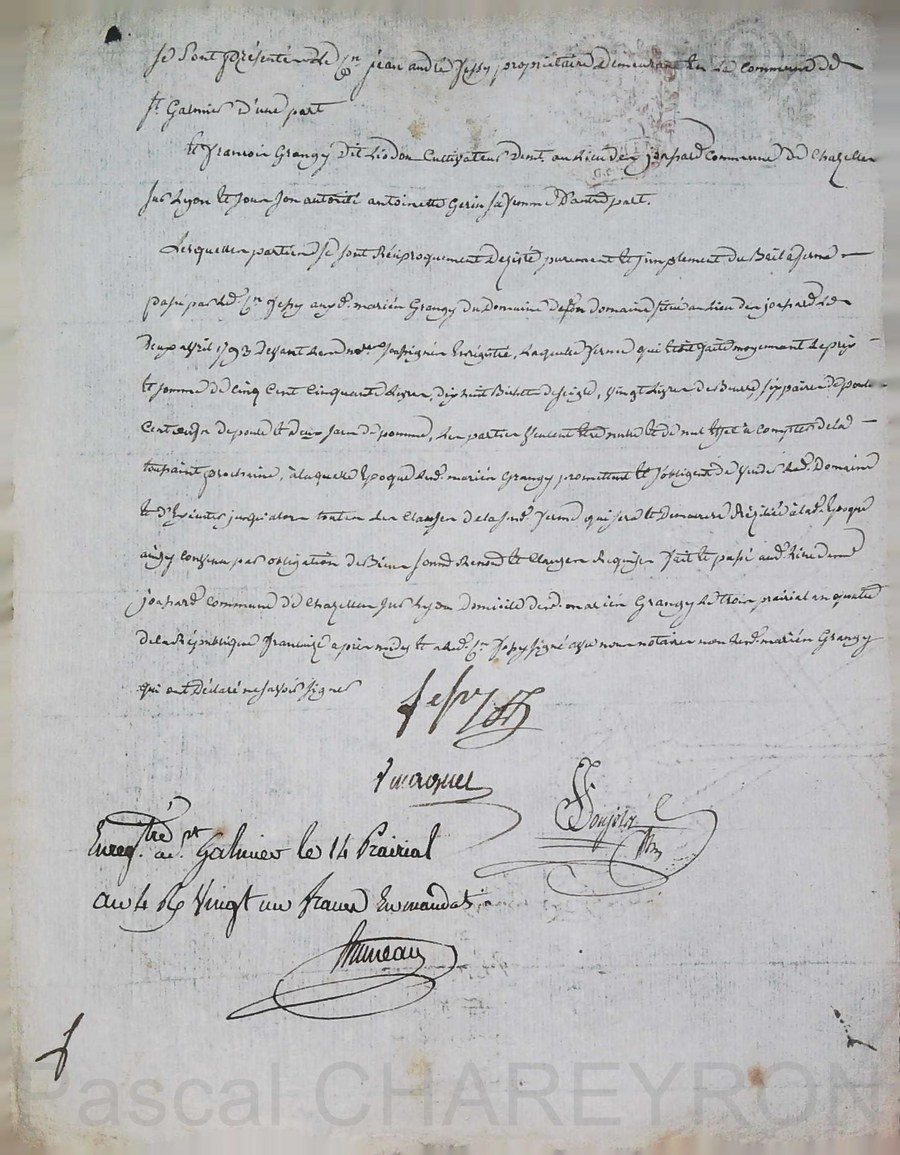 Se sont présentés le Cn jean andré jessy propriétaire demeurant en la commune de
st Galmier d'une part
et françois Grangy dit Liodon Cultivateur demt au lieu des jonhard commune de Chazelles
sur Lyon et sous son autorité antoinette Gerin sa femme d'autre part.
Lesquelles parties se sont Réciproquement dezisté purement et simplement du Bail à ferme
passé par led. Cn jessy auxd. mariés Grangy du domaine de son domaine situé au lieu des jonhard le
deux avril 1793 devant led notre soussigné Enrégistré, Laquelle ferme qui étoit faite moyennant le prix
et somme de cinq Cent Cinquante Livres, dix huit Bichet de seigle, vingt Livres de Beurre, six paires de poulet
Cent œufs de poule et deux sacs de pommes, les parties veulent être nulle et de nul effet à compter de la
toussaint prochaine, à laquelle Epoque lesd. mariés Grangy promettent et s'obligent de vuider led. Domaine
et d'Exécuter jusqu'alors toutes les Clauses de la susd. ferme qui sera et demeurera Rézilié à lad. Epoque
ainsy convenu par obligation de Biens soumis Renon et Clauses Requises fait et passé aud. lieu des
jonhard commune de Chazelles sur Lyon domicile desd. mariés Grangy le trois prairial an quatre
de la République française après midy et a led. Cn jessy signé avec nous notaires non lesd. mariés Grangy
qui ont déclaré ne savoir signer
jessy
Enregtré a st Galmier le 14 Prairial
an 4 R Vingt un francs En mandat
Pascal CHAREYRON